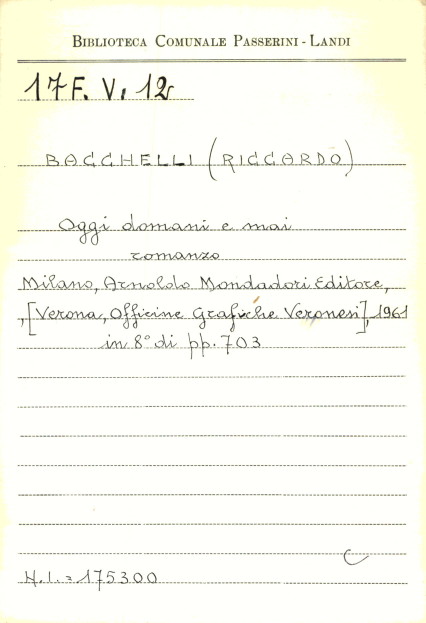 BIBLIOTECA COMUNALE PASSERINI - LANDI
17 F. V. 12
BACCHELLI (RICCARDO)
Oggi domani e mai
romanzo
Milano, Arnoldo Mondadori Editore,
, [Verona, Officine Grafiche Veronesi], 1961
in 8° di pp. 703
C
N.I. = 175300